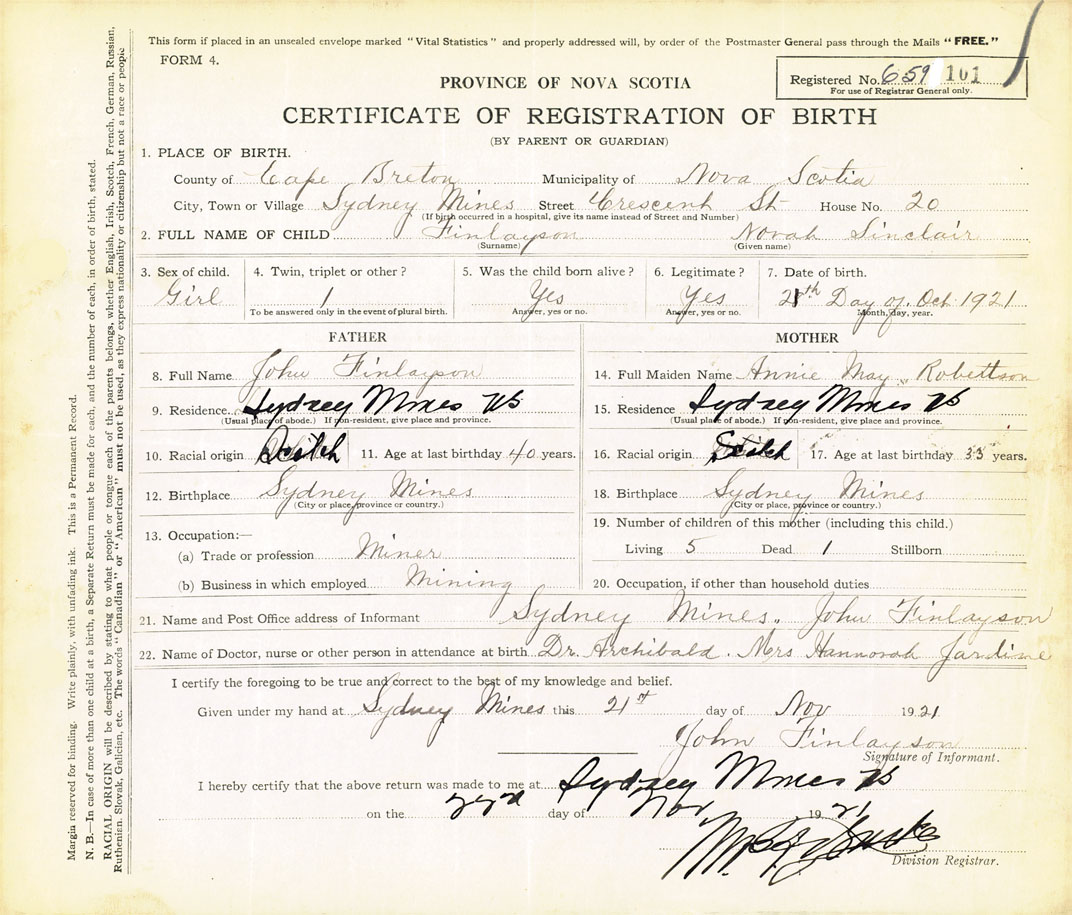 This form if placed in an unsealed envelope marked "Vital Statistics" and properly addressed will, by order of the Postmaster General pass through the Mails "FREE."
FORM 4.
Registered No. 659 101
For use of Registrar General only.
PROVINCE OF NOVA SCOTIA
CERTIFICATE OF REGISTRATION OF BIRTH
(BY PARENT OR GUARDIAN)
1. PLACE OF BIRTH.
County of Cape Breton Municipality of Nova Scotia
City, Town or Village Sydney Mines Street Crescent St House No. 20
(If birth occurred in a hospital, give its name instead of Street and Number)
2. FULL NAME OF CHILD Finlayson Norah Sinclair
(Surname) (Given name)
3. Sex of child. 4. Twin, triplet or other? 5. Was the child born alive? 6. Legitimate? 7. Date of birth.
Girl 1 Yes Yes th Day of. Oct 1921
To be answered only in the event of plural birth. Answer, yes or no. Answer, yes or no. Month, day, year.
FATHER MOTHER
8. Full Name John Finlayson 14. Full Maiden Name Annie May Robertson
9. Residence Sydney Mines NS 15. Residence Sydney Mines NS
(Usual place of abode.) If non-resident, give place and province. (Usual place of abode.) If non-resident, give place and province.
10. Racial origin Scotch 11. Age at last birthday 40 years. 16. Racial origin Scotch 17. Age at last birthday 33 years.
12. Birthplace Sydney Mines 18. Birthplace Sydney Mines
(City or place, province or country.) (City or place, province or country.)
13. Occupation:— 19. Number of children of this mother (including this child.)
(a) Trade or profession Miner Living 5 Dead 1 Stillborn
(b) Business in which employed Mining 20. Occupation, if other than household duties
21. Name and Post Office address of Informant Sydney Mines. John Finlayson
22. Name of Doctor, nurse or other person in attendance at birth Dr. Archibald. Mrs Hannorah Jardine
I certify the foregoing to be true and correct to the best of my knowledge and belief.
Given under my hand at Sydney Mines this 21st day of Nov 1921
John Finlayson
Signature of Informant.
I hereby certify that the above return was made to me at Sydney Mines NS
on the 22nd day of Nov 1921
Division Registrar.
Margin reserved for binding. Write plainly, with unfading ink. This is a Permanent Record.
N. B.—In case of more than one child at a birth, a Separate Return must be made for each, and the number of each, in order of birth, stated.
RACIAL ORIGIN will be described by stating to what people or tongue each of the parents belongs, whether English, Irish, Scotch, French, German, Russian,
Ruthenian, Slovak, Galician, etc. The words "Canadian" or "American" must not be used, as they express nationality or citizenship but not a race or people